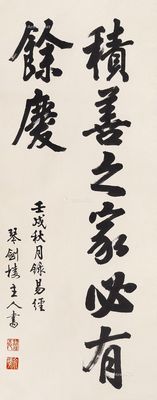 積善之家必有
餘慶
壬戌秋月錄易經
琴劍樓主人書